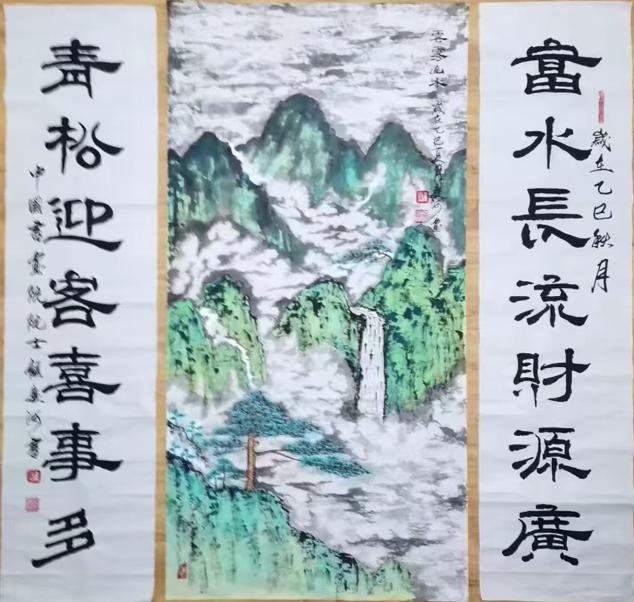 當水長流財源廣
歲在乙巳秋月
雲霧流水 歲在乙巳夏月
青松迎客喜事多
中國書畫院院士